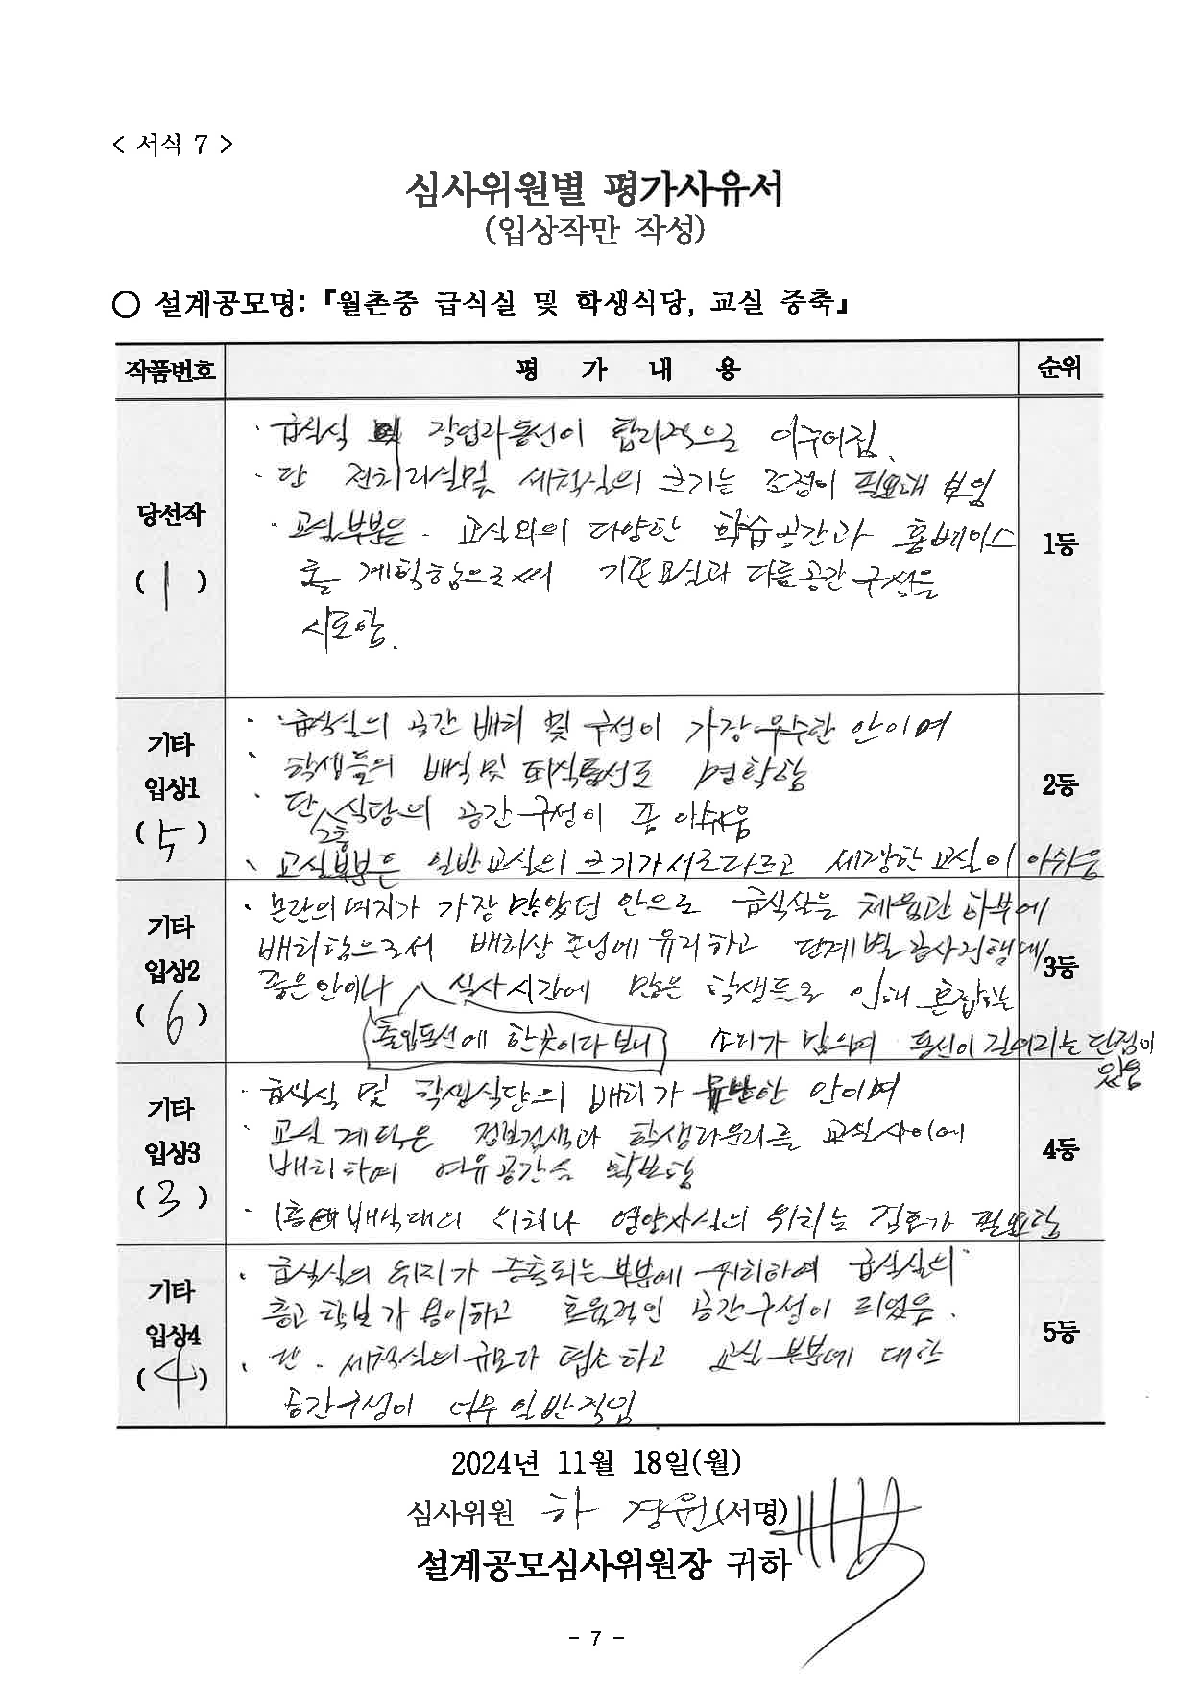 < 서식 7 >
심사위원별 평가사유서
(입상작만 작성)
○ 설계공모명: 『월촌중 급식실 및 학생식당, 교실 증축』
작품번호 평 가 내 용 순위
당선작
( 1 )
· 급식실 작업과동선이 합리적으로 이루어짐.
· 단 전처리실및 세척실의 크기는 조정이 필요해 보임
· 교실부분은 교실외의 다양한 학습공간과 홈베이스
를 계획함으로써 기존교실과 다른공간 구성을
시도함.
1등
기타
입상1
( 5 )
· 급식실의 공간 배치 및 구성이 가장 우수한 안이며
· 학생들의 배식 및 퇴식동선도 명확함
· 단 2층 식당의 공간구성이 좀 아쉬움
· 교실부분은 일반교실의 크기가 서로다르고 세장한 교실이 아쉬움
2등
기타
입상2
( 6 )
· 논란의 여지가 가장 많았던 안으로 급식실을 체육관 하부에
배치함으로서 배치상 유리하고 단계별 공사진행에
좋은안이나 출입동선에 한곳이다 보니 식사시간에 많은 학생들로 인해 혼잡도는
소지가 많으며 동선이 길어지는 단점이
있음
3등
기타
입상3
( 3 )
· 급식실 및 학생식당의 배치가 안이며
· 교실 계획은 정보검색과 학생라운지를 교실사이에
배치하여 여유공간을 확보함
· 1층 배식대의 위치나 영양사실의 위치는 검토가 필요함
4등
기타
입상4
( 4 )
· 급식실의 위치가 증축되는부분에 위치하여 급식실의
층고 확보가 용이하고 효율적인 공간구성이 되었음.
· 단. 세척실의 규모가 협소하고 교실 부분에 대한
공간구성이 너무 일반적임
5등
2024년 11월 18일(월)
심사위원 하 경원 (서명)
설계공모심사위원장 귀하
- 7 -